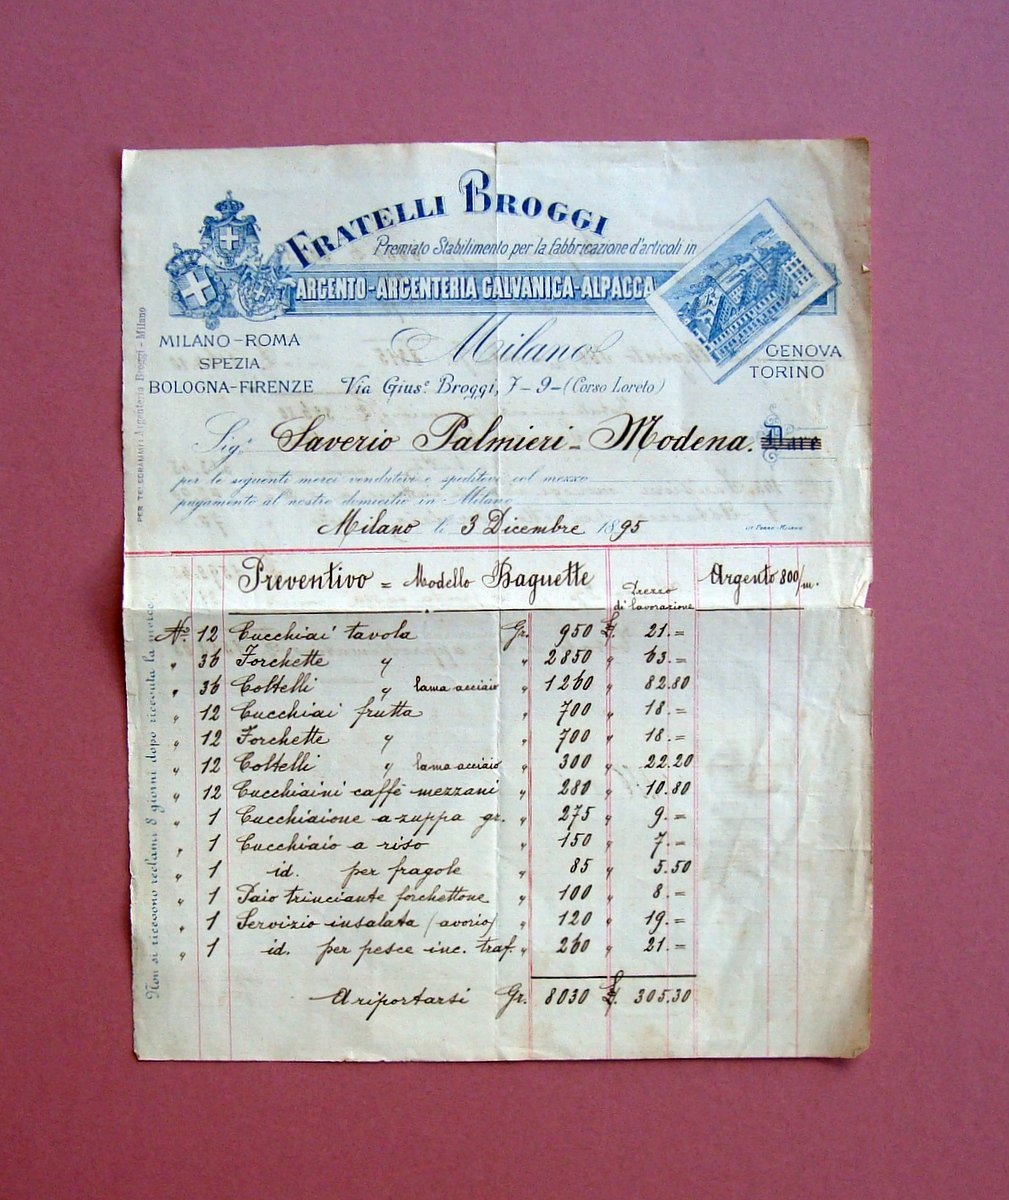 FRATELLI BROGGI
Premiato Stabilimento per la fabbricazione d'articoli in
ARGENTO-ARGENTERIA GALVANICA-ALPACCA
MILANO-ROMA
SPEZIA
BOLOGNA-FIRENZE
Milano
Via Gius.e Broggi, 7-9-(Corso Loreto)
GENOVA
TORINO
PER TELEGRAMMI Argenteria Broggi - Milano
Sig.r Saverio Palmieri = Modena. Dare
per le seguenti merci vendutevi e speditevi col mezzo
pagamento al nostro domicilio in Milano
Milano li 3 Dicembre 1895
Non si ricevono reclami 8 giorni dopo ricevuta la merce
Preventivo = Modello Baguette Prezzo di lavorazione Argento 800/m.
N.° 12 Cucchiai tavola Gr. 950 £. 21.=
" 36 Forchette " " 2850 " 63.=
" 36 Coltelli " lama acciaio " 1260 " 82.80
" 12 Cucchiai frutta " 700 " 18.=
" 12 Forchette " " 700 " 18.=
" 12 Coltelli " lama acciaio " 300 " 22.20
" 12 Cucchiaini caffè mezzani " 280 " 10.80
" 1 Cucchiaione a zuppa gr. " 275 " 9.=
" 1 Cucchiaio a riso " 150 " 7.=
" 1 id. per fragole " 85 " 5.50
" 1 Paio trinciante forchettone " 100 " 8.=
" 1 Servizio insalata (avorio) " 120 " 19.=
" 1 id. per pesce inc. traf. " 260 " 21.=
A riportarsi Gr. 8030 £. 305.30